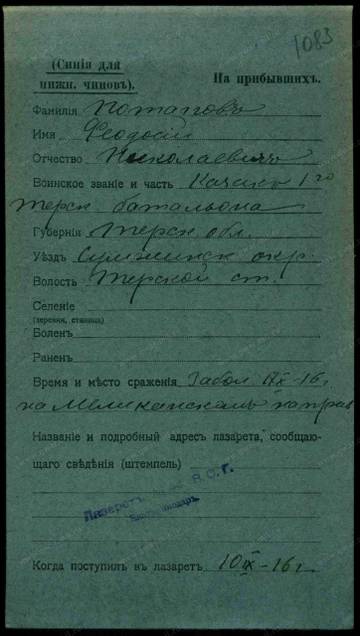 1083
(Синія для
нижн. чиновъ).
На прибывшихъ.
Фамилія Потаповъ
Имя Феодосій
Отчество Николаевичъ
Воинское званіе и часть Казакъ 1го
Терск. баталіона
Губернія Терск. обл.
Уѣздъ Сунженск. окр.
Волость Терской ст.
Селеніе
(деревня, станица)
Боленъ
Раненъ
Время и мѣсто сраженія Забол. IX-16г.
на направ.
Названіе и подробный адресъ лазарета, сообщаю-
щаго свѣдѣнія (штемпель)
Лазаретъ В.С.Г.
Когда поступилъ въ лазаретъ 10 IX-16 г.